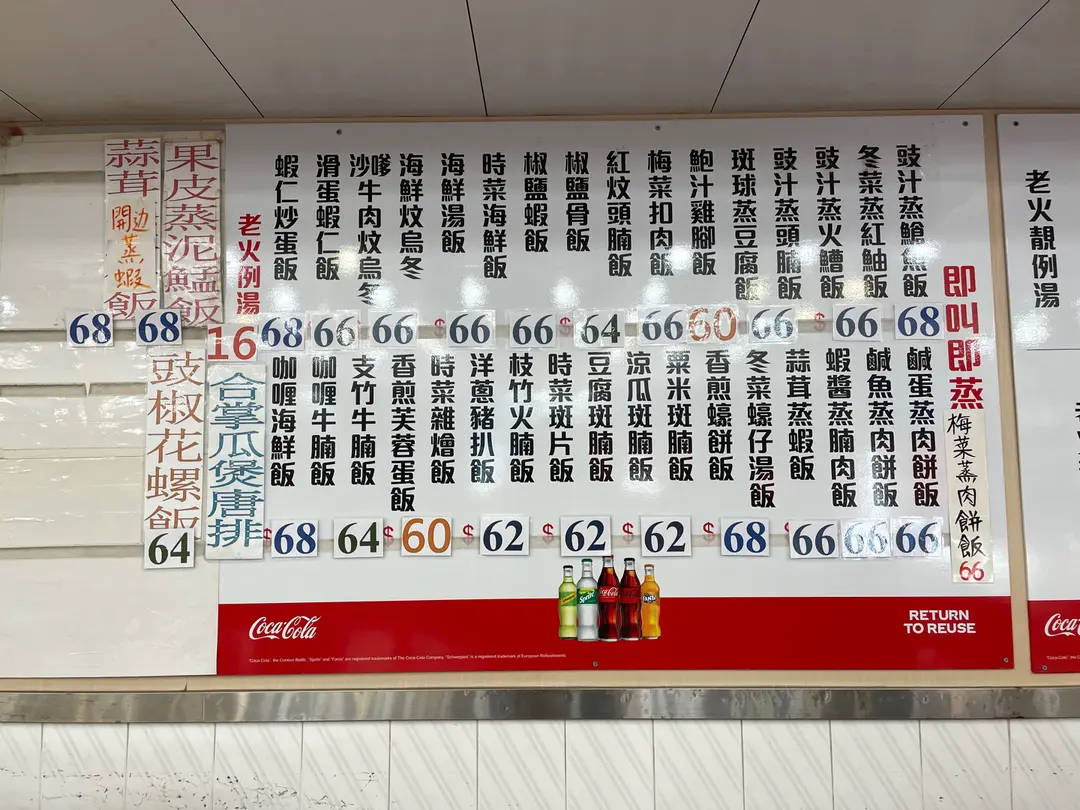 老火靚例湯
即叫即蒸
梅菜蒸肉餅飯
66
豉汁蒸鱠魚飯
冬菜蒸紅鮋飯
豉汁蒸火鰽飯
豉汁蒸頭腩飯
斑球蒸豆腐飯
鮑汁雞腳飯
梅菜扣肉飯
紅炆頭腩飯
椒鹽骨飯
椒鹽蝦飯
時菜海鮮飯
海鮮湯飯
海鮮炆烏冬
沙嗲牛肉炆烏冬
滑蛋蝦仁飯
蝦仁炒蛋飯
老火例湯
16
68 66 $ 66 60 66 64 $ 66 $ 66 66 66 68
鹹蛋蒸肉餅飯
鹹魚蒸肉餅飯
蝦醬蒸腩肉飯
蒜茸蒸蝦飯
冬菜蠔仔湯飯
香煎蠔餅飯
粟米斑腩飯
涼瓜斑腩飯
豆腐斑腩飯
時菜斑片飯
枝竹火腩飯
洋蔥豬扒飯
時菜雜燴飯
香煎芙蓉蛋飯
支竹牛腩飯
咖喱牛腩飯
咖喱海鮮飯
66 66 66 68 $ 62 $ 62 $ 62 $ 60 $ 64 68 $
果皮蒸泥鯭飯
68
蒜茸開边蒸蝦飯
68
合掌瓜煲唐排
豉椒花螺飯
64
Coca-Cola
Sprite
Coca-Cola
Fanta
RETURN
TO REUSE
"Coca-Cola", the Contour Bottle, "Sprite" and "Fanta" are registered trademarks of The Coca-Cola Company. "Schweppes" is a registered trademark of European Refreshments.